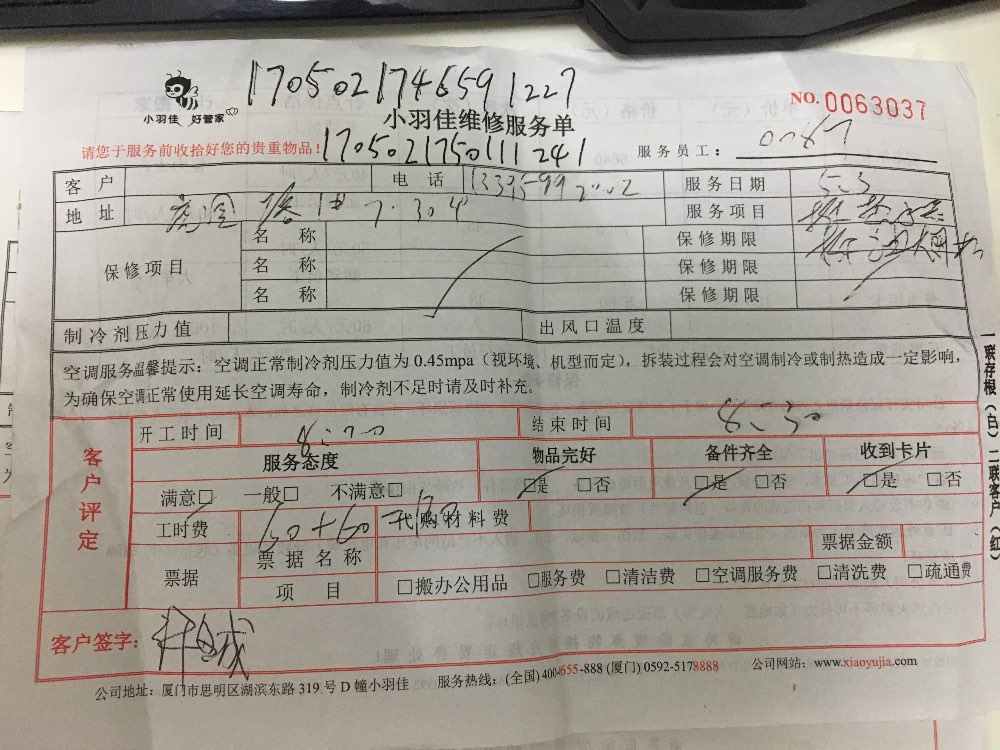 1705021746591227
小羽佳 好管家
小羽佳维修服务单
NO. 0063037
请您于服务前收拾好您的贵重物品!
1705021750111241
服务员工:
客 户 电 话 服务日期 5.3
地 址 7.304 服务项目
保修项目 名 称 保修期限
名 称 保修期限
名 称 保修期限
制冷剂压力值 出风口温度
空调服务温馨提示:空调正常制冷剂压力值为 0.45mpa(视环境、机型而定),拆装过程会对空调制冷或制热造成一定影响,
为确保空调正常使用延长空调寿命,制冷剂不足时请及时补充。
客户评定
开工时间 结束时间 8:30
服务态度 物品完好 备件齐全 收到卡片
满意□ 一般□ 不满意□ □是 □否 □是 □否 □是 □否
工时费 60+60 代购材料费
票据 票据名称 票据金额
项 目 □搬办公用品 □服务费 □清洁费 □空调服务费 □清洗费 □疏通费
客户签字:
公司地址:厦门市思明区湖滨东路 319 号 D 幢小羽佳 服务热线:(全国) 400-655-888 (厦门) 0592-5178888 公司网站:www.xiaoyujia.com
一联存根(白) 二联客户(红)